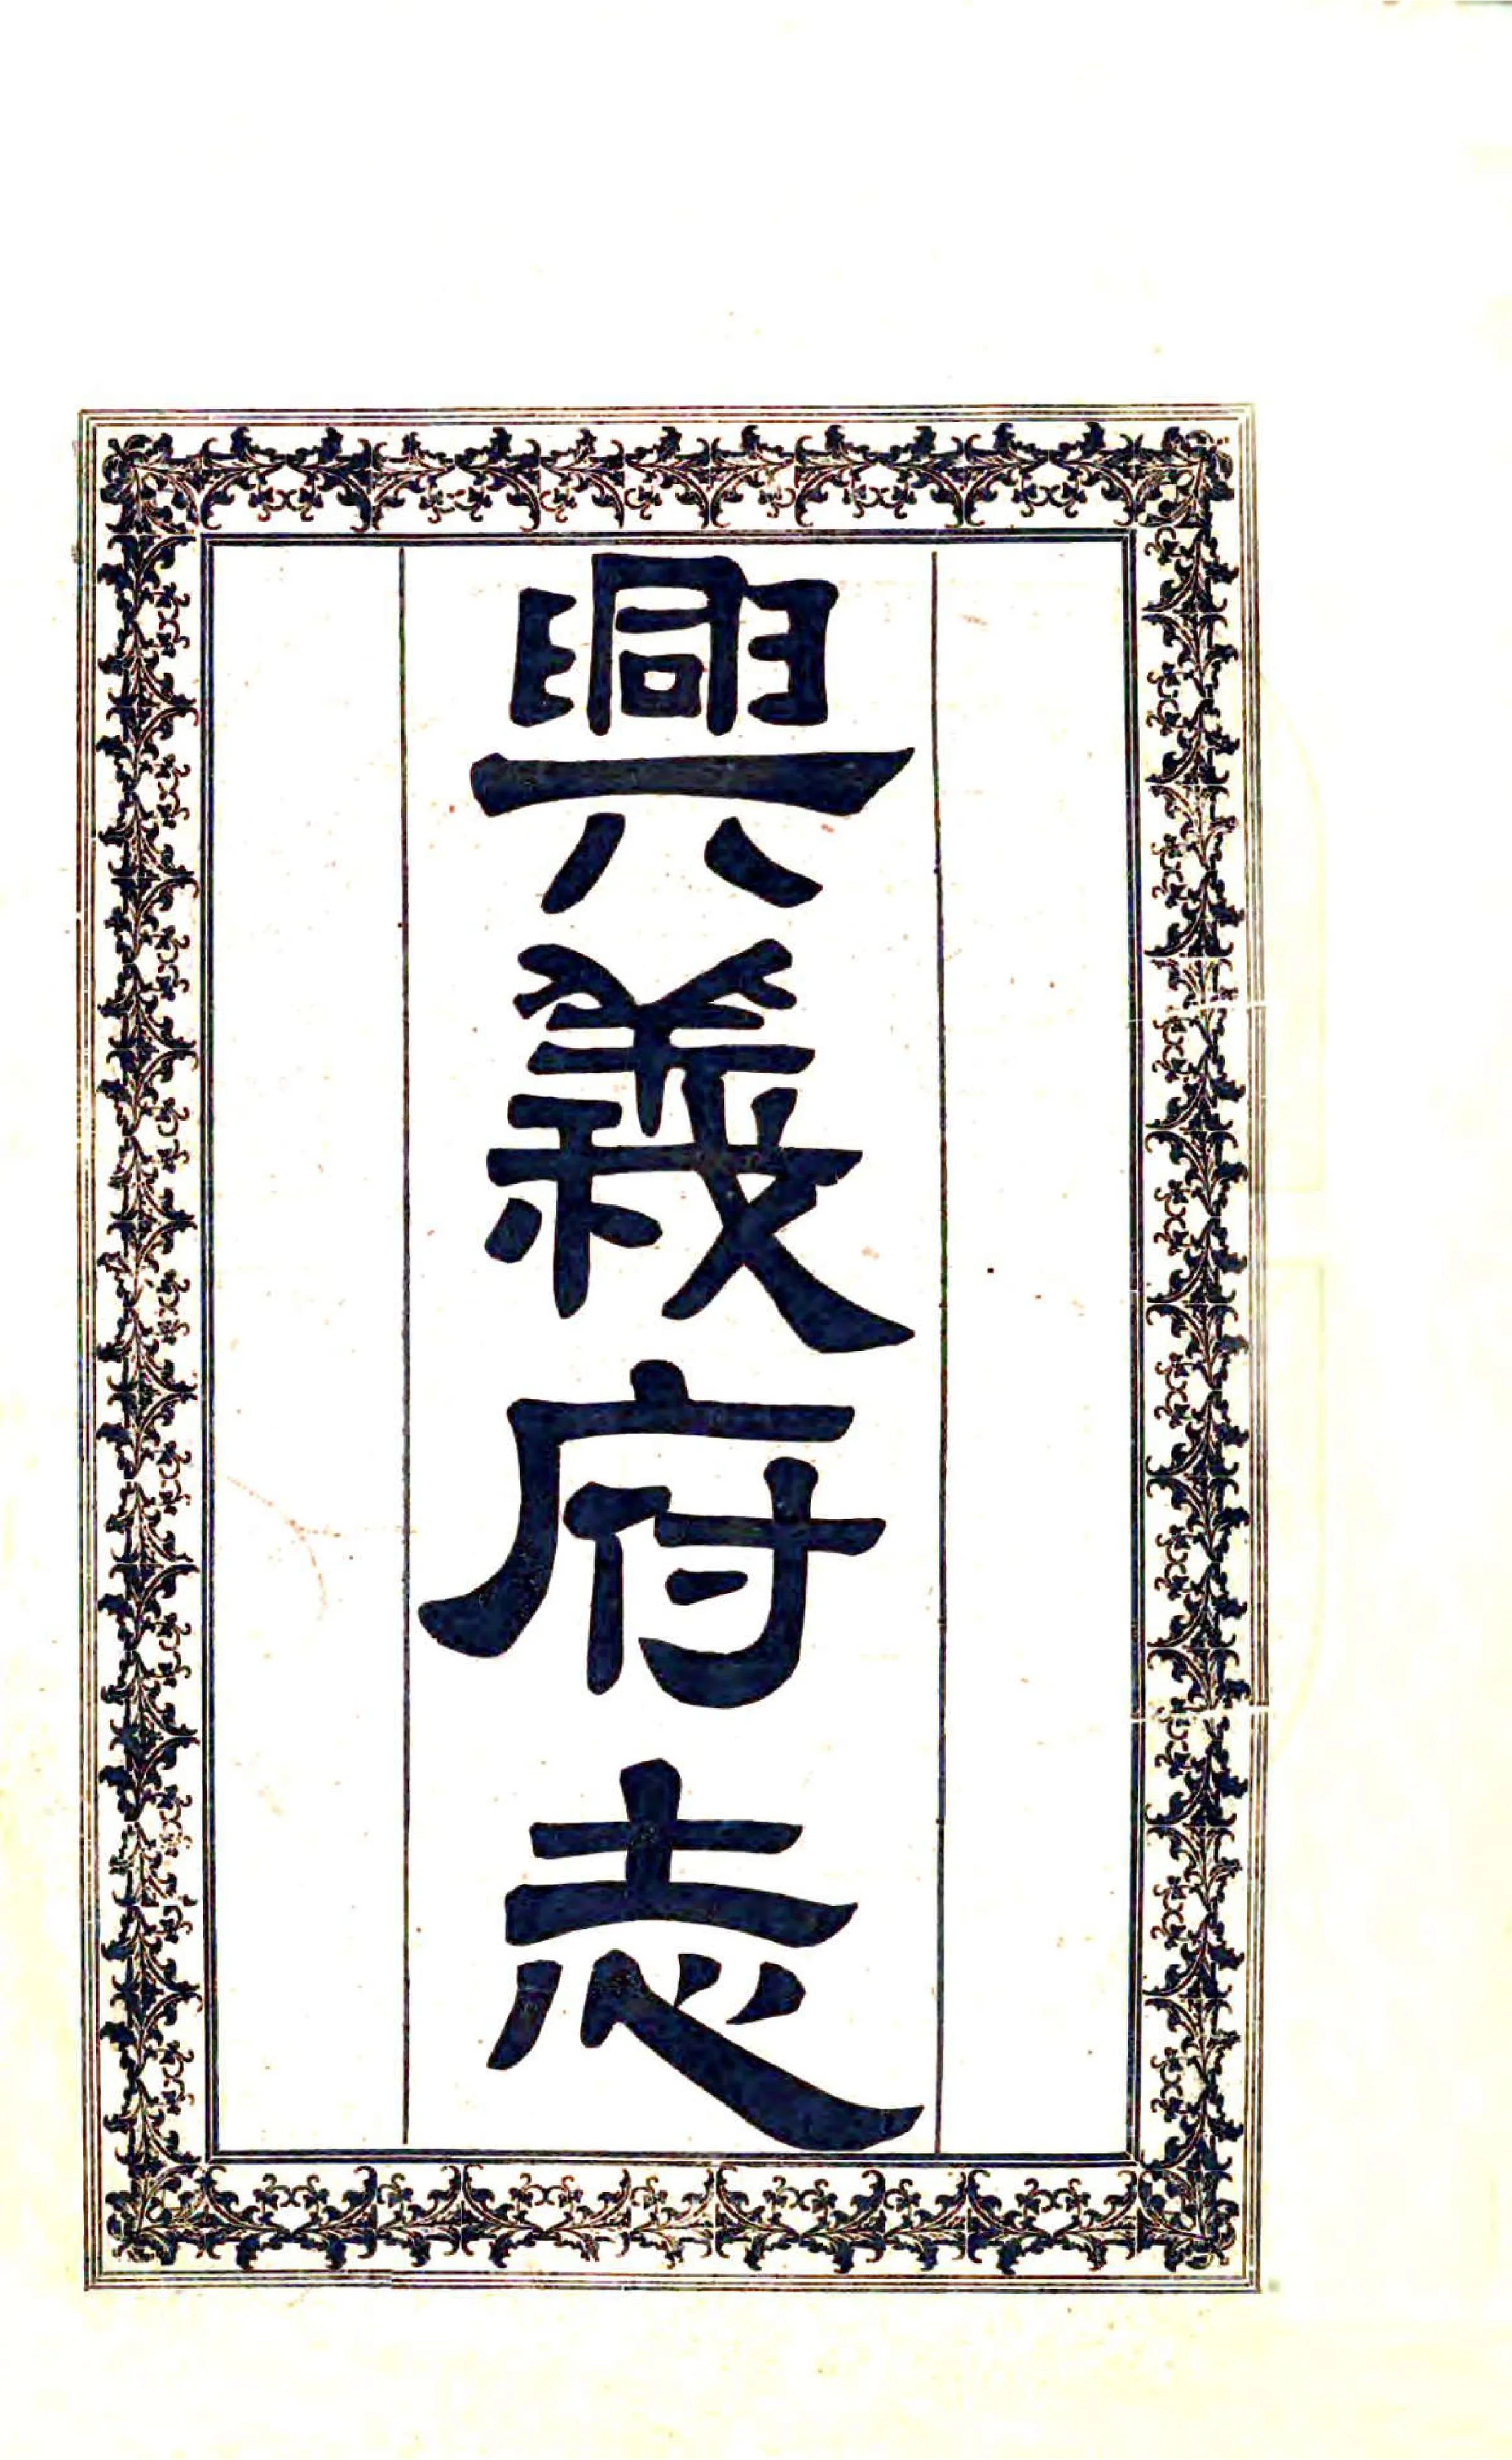 興義府志